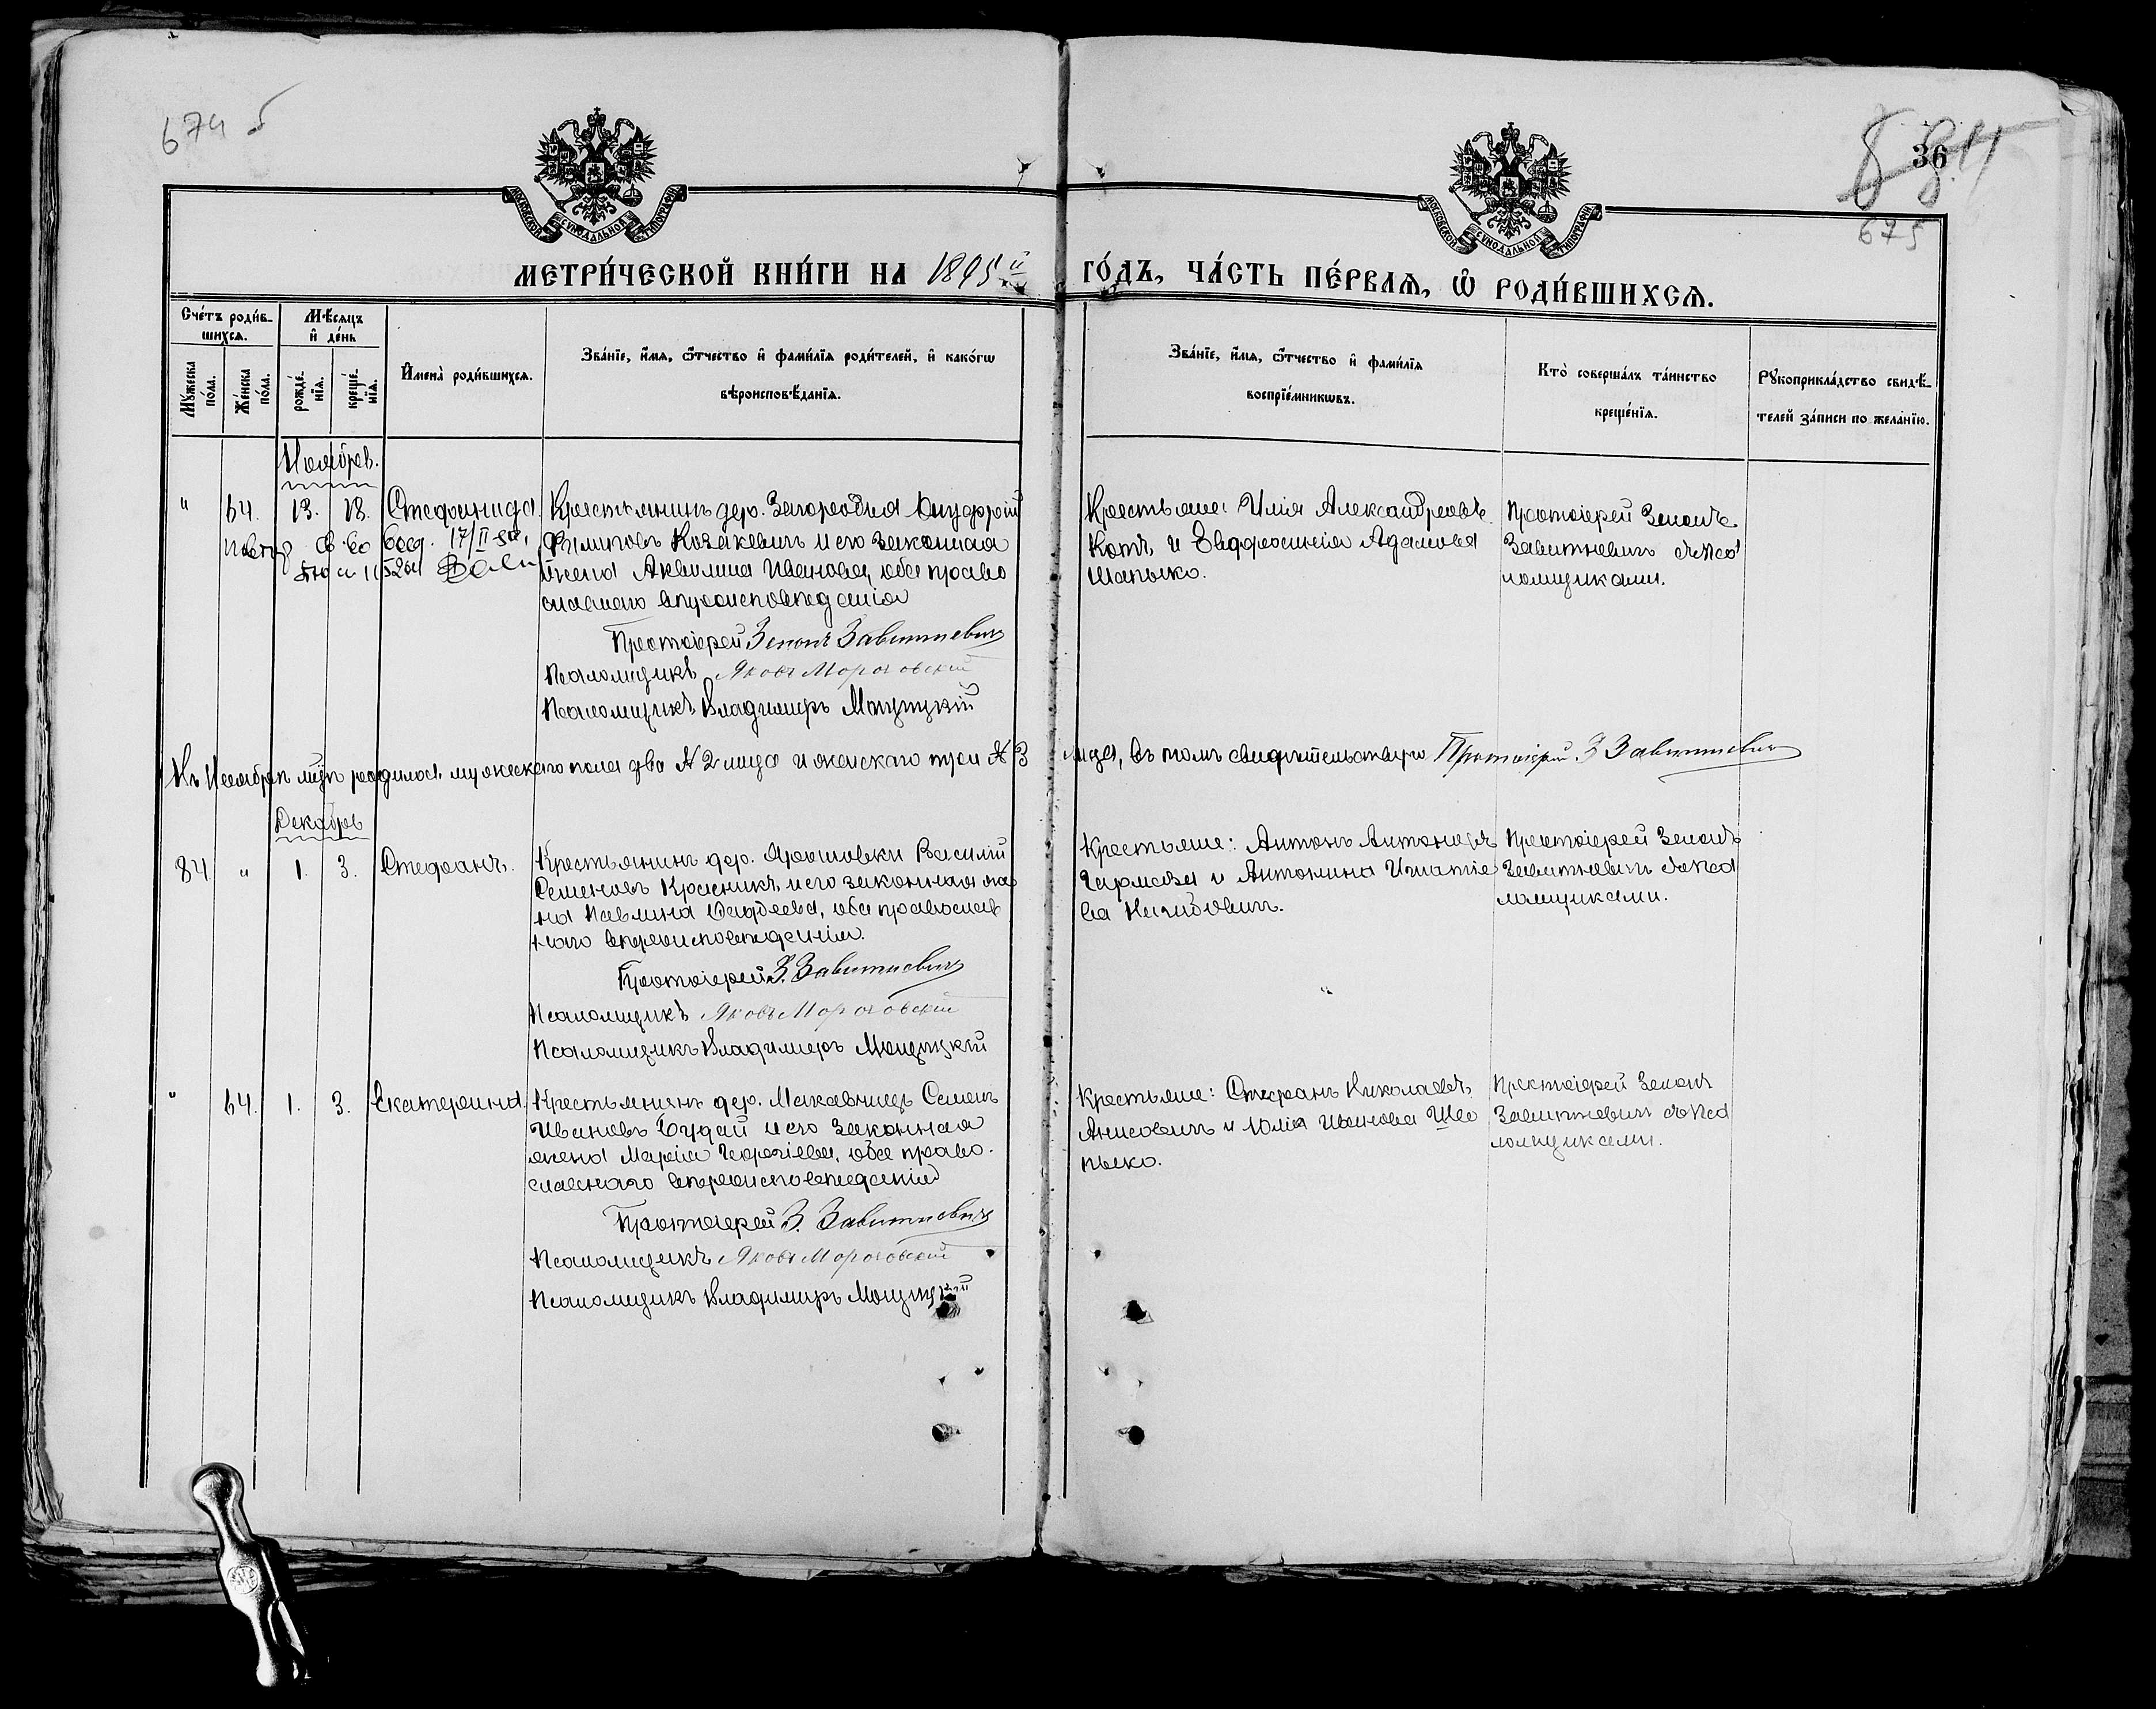 674 б
36
675
МОСКОВСКОЙ СУНОДАЛЬНОЙ ТИПОГРАФИИ
МОСКОВСКОЙ СУНОДАЛЬНОЙ ТИПОГРАФИИ
МЕТРИ́ЧЕСКОЙ КНИ́ГИ НА 1895й ГО́ДЪ, ЧА́СТЬ ПЕ́РВАЯ, Ѡ҆ РОДИ́ВШИХСЯ.
Сче́тъ роди́в-
шихся.
Мѣ́сяцъ
и҆ де́нь
Мꙋ́жеска по́ла.
Же́нска по́ла.
рожде́-нїя.
креще́-нїя.
И҆мена̀ роди́вшихся.
Зва́нїе, и҆́мя, ѻ҆́тчество и҆ фами́лїя роди́телей, и҆ како́гѡ
вѣроисповѣ́данїя.
Зва́нїе, и҆́мя, ѻ҆́тчество и҆ фами́лїя
воспрїе́мникѡвъ.
Кто̀ соверша́лъ та́инство
креще́нїя.
Рꙋкоприкла́дство свидѣ́-
телей за́писи по жела́нїю.
Ноябрь.
" 64. 13. 18. Стефанида
Крестьянинъ дер. Загородья Онуфрій
Филиповъ Козакевичъ и его законная
жена Акилина Иванова, оба право
славнаго вѣроисповѣданія
Протоіерей Зенонъ Завитневичъ
Псаломщикъ Яковъ Морочовскій
Псаломщикъ Владимиръ Мощицкій
Крестьяне: Илія Александровъ
Котъ и Евфросинія Адамова
Шапылко.
Протоіерей Зенонъ
Завитневичъ съ Пса
ломщиками.
Въ Ноябрѣ мцѣ родилось мужескаго пола два № 2 лица и женскаго три № 3 лица, въ томъ свидѣтельствую Протоіерей З Завитневичъ
Декабрь
84 " 1. 3. Стефанъ.
Крестьянинъ дер. Ярошовки Василій
Семеновъ Красникъ и его законная же
на Павлина Фадеева, оба православ
наго вѣроисповѣданія.
Протоіерей З. Завитневичъ
Псаломщикъ Яковъ Морочовскій
Псаломщикъ Владимиръ Мощицкій
Крестьяне: Антонъ Антоновъ
и Антонина Игнатіе
ва
Протоіерей Зенонъ
Завитневичъ съ Пса
ломщиками.
" 64. 1. 3. Екатерина.
Крестьянинъ дер. Макавчицъ Семенъ
Ивановъ Будай и его законная
жена Марія Георгіева, оба право-
славнаго вѣроисповѣданія
Протоіерей З. Завитневичъ
Псаломщикъ Яковъ Морочовскій
Псаломщикъ Владимиръ Мощицкій
Крестьяне: Стефанъ Николаевъ
Анисовичъ и Юлія Иванова Ша
пылко.
Протоіерей Зенонъ
Завитневичъ съ Пса
ломщиками.